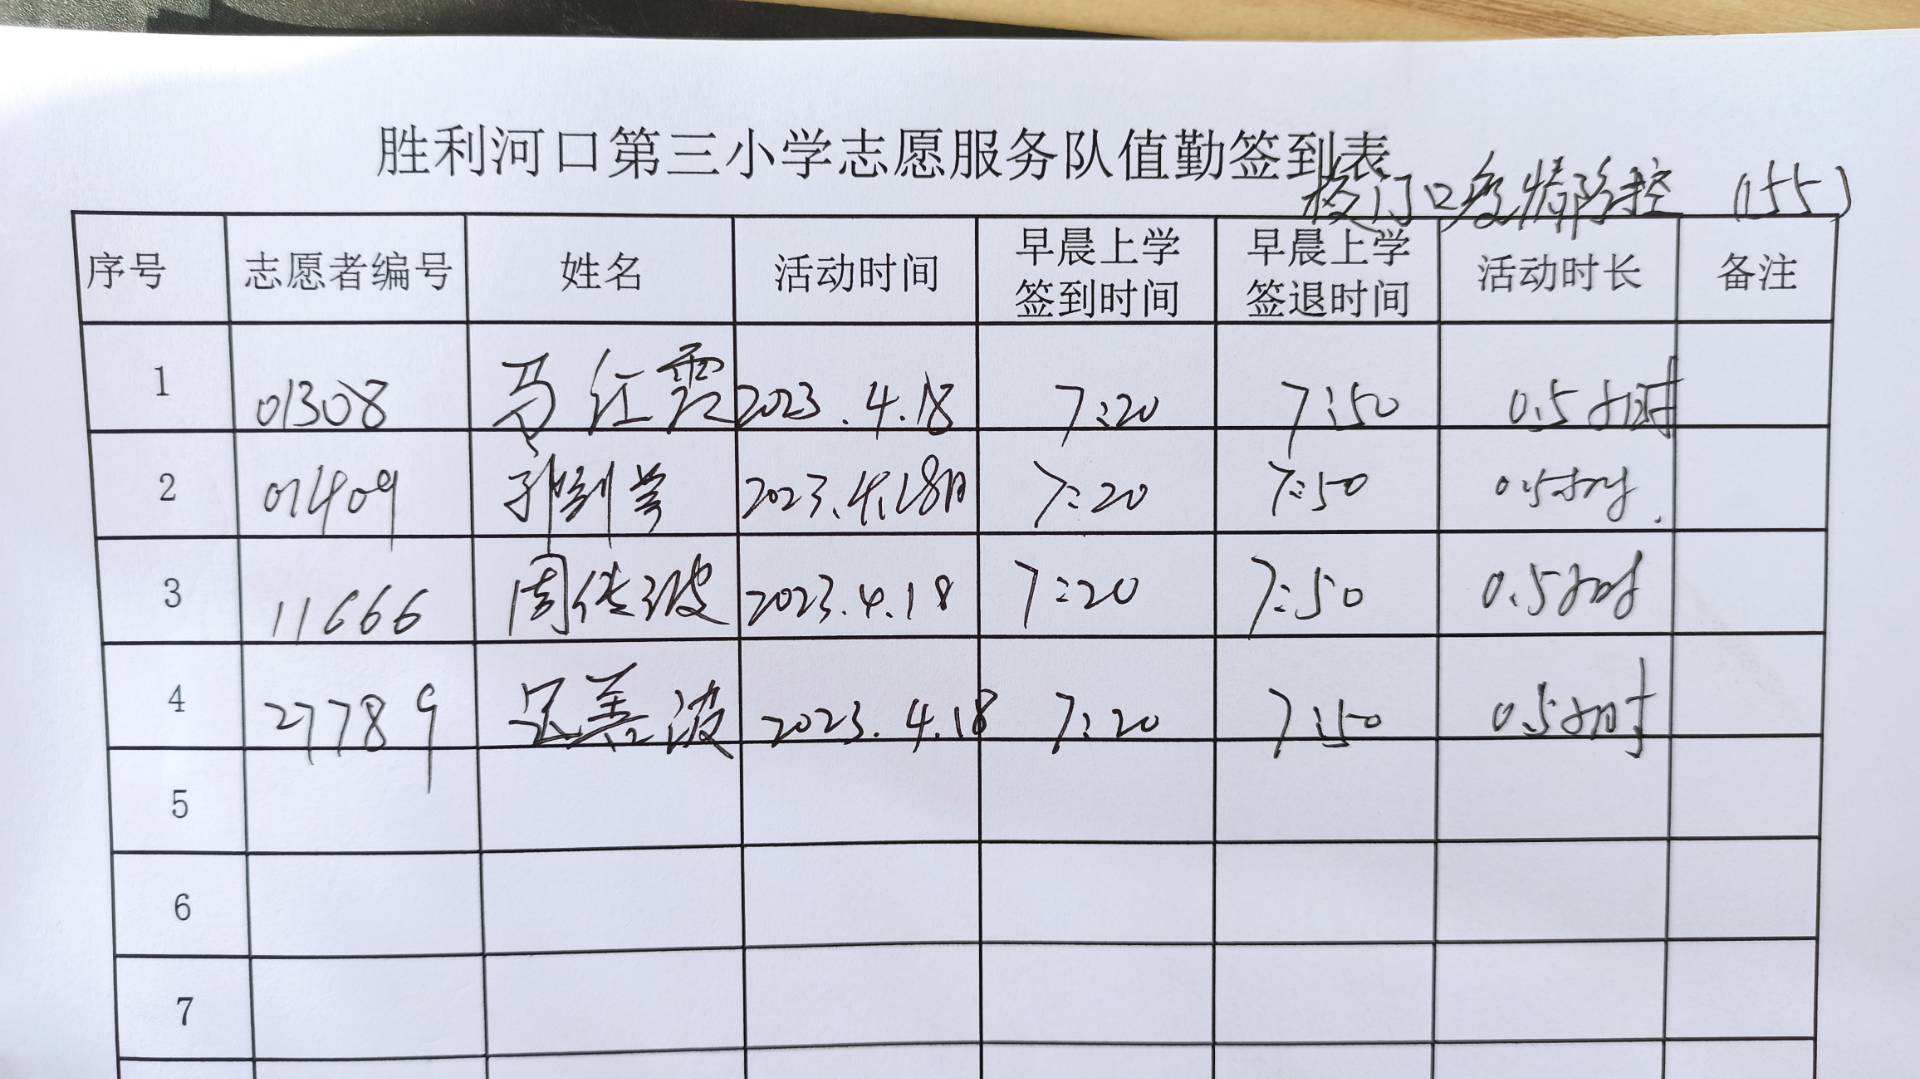 胜利河口第三小学志愿服务队值勤签到表
校门口疫情防控 (155)
序号 志愿者编号 姓名 活动时间 早晨上学签到时间 早晨上学签退时间 活动时长 备注
1 01308 马红霞 2023.4.18 7:20 7:50 0.5小时
2 01409 2023.4.18日 7:20 7:50 0.5小时.
3 11666 周传波 2023.4.18 7:20 7:50 0.5小时
4 27789 善波 2023.4.18 7:20 7:50 0.5小时
5
6
7